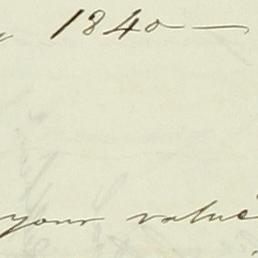 1840 —
your value